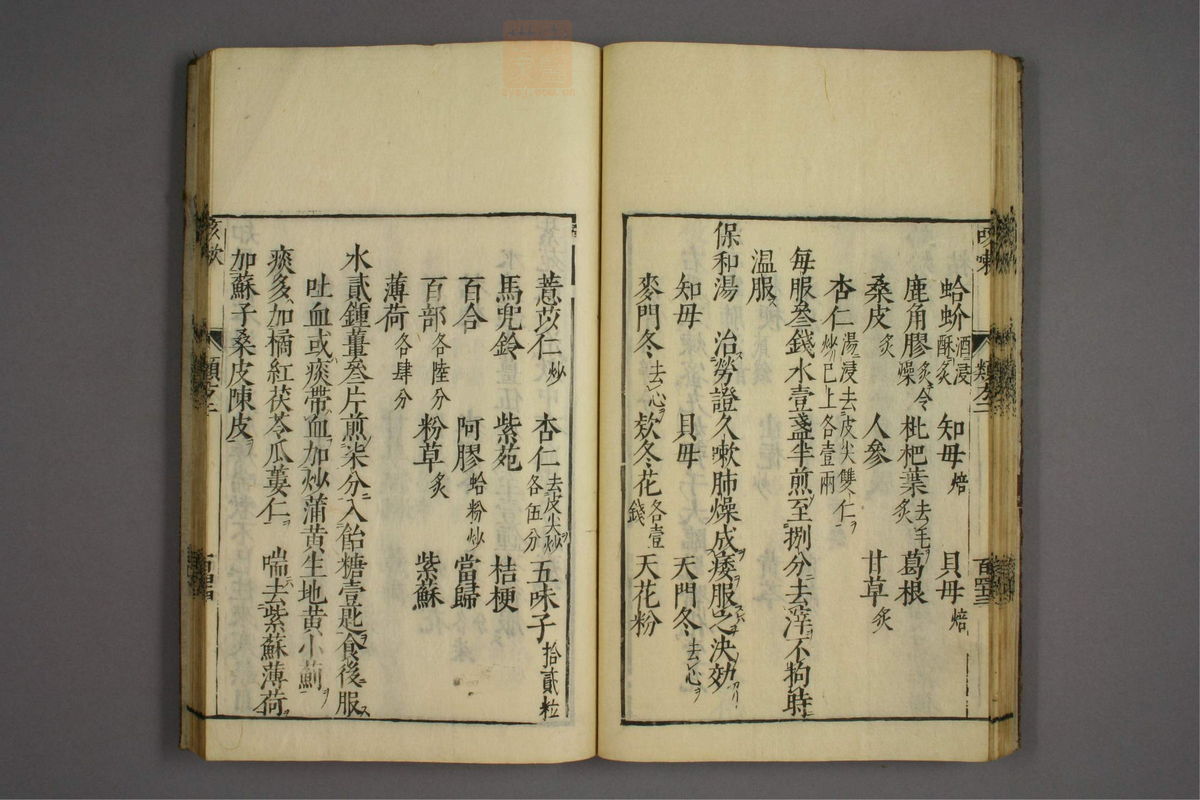 咳嗽
蛤蚧酒浸酥炙 知母焙 貝母焙
鹿角膠炙令燥 枇杷葉炙去毛 葛根
桑皮炙 人參 甘草炙
杏仁湯浸去皮尖雙仁炒已上各壹兩
每服叁錢水壹盞半煎至捌分去滓不拘時
温服
保和湯 治勞證久嗽肺燥成痿服之決効
知母 貝母 天門冬去心
麥門冬去心 欵冬花各壹錢 天花粉
薏苡仁炒 杏仁去皮尖炒各伍分 五味子拾貳粒
馬兜鈴 紫苑 桔梗
百合 阿膠蛤粉炒 當歸
百部各陸分 粉草炙 紫蘇
薄荷各肆分
水貳鍾薑叁片煎柒分入飴糖壹匙食後服
吐血或痰帶血加炒蒲黄生地黄小薊
痰多加橘紅茯苓瓜蔞仁 喘去紫蘇薄荷
加蘇子桑皮陳皮
咳嗽